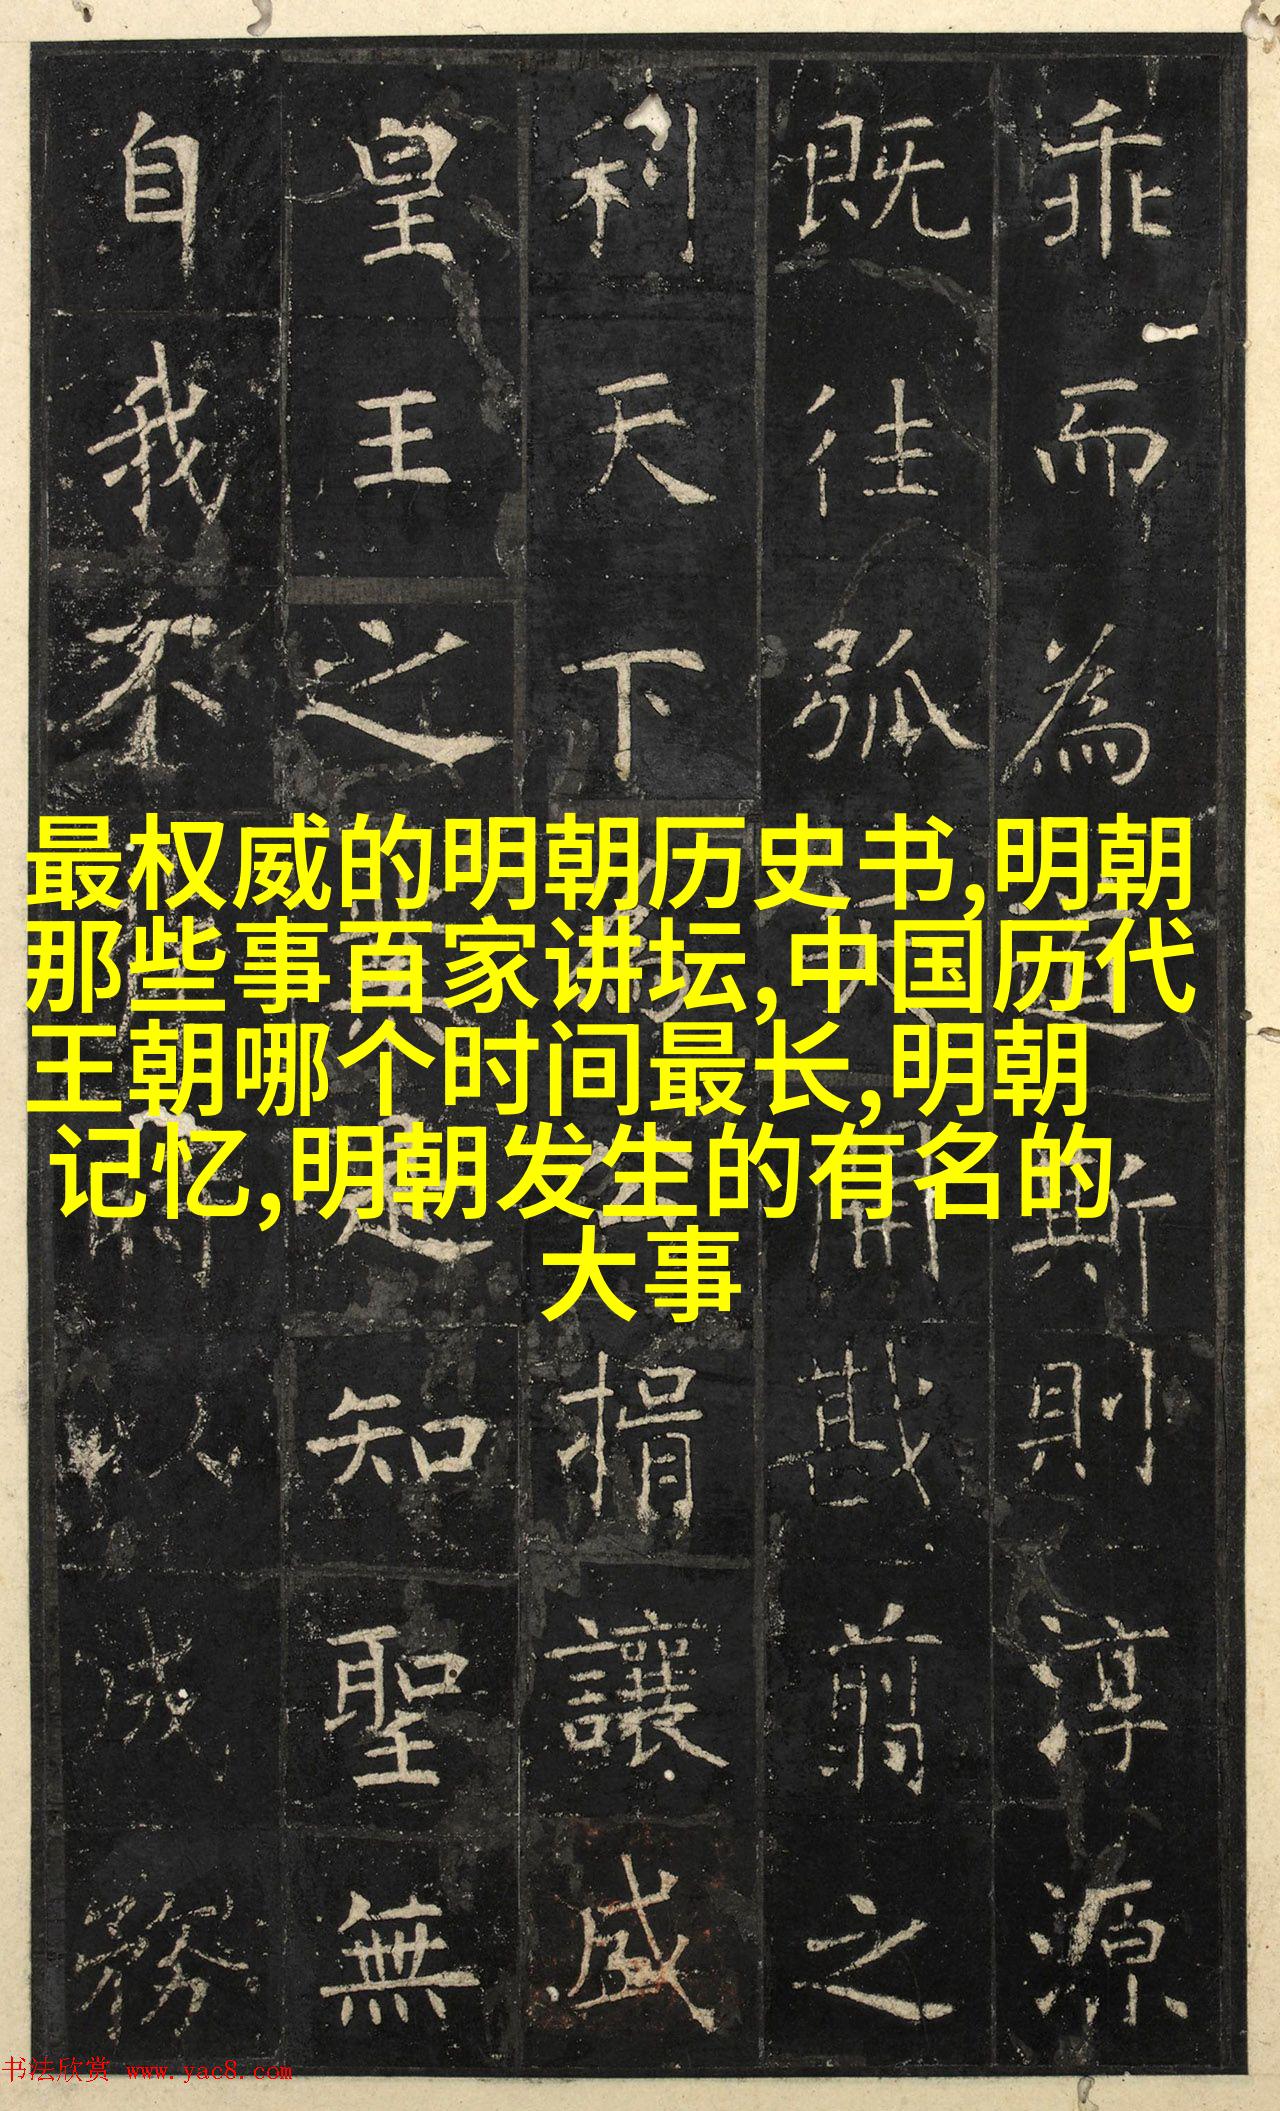 乖而為斯則淳源
既往弧開戡翦之
利天下為公揖讓咸
皇王之是知聖無
自我不以成務
最权威的明朝历史书,明朝
那些事百家讲坛,中国历代
王朝哪个时间最长,明朝
记忆,明朝发生的有名的
大事
书法欣赏 www.yac8.com